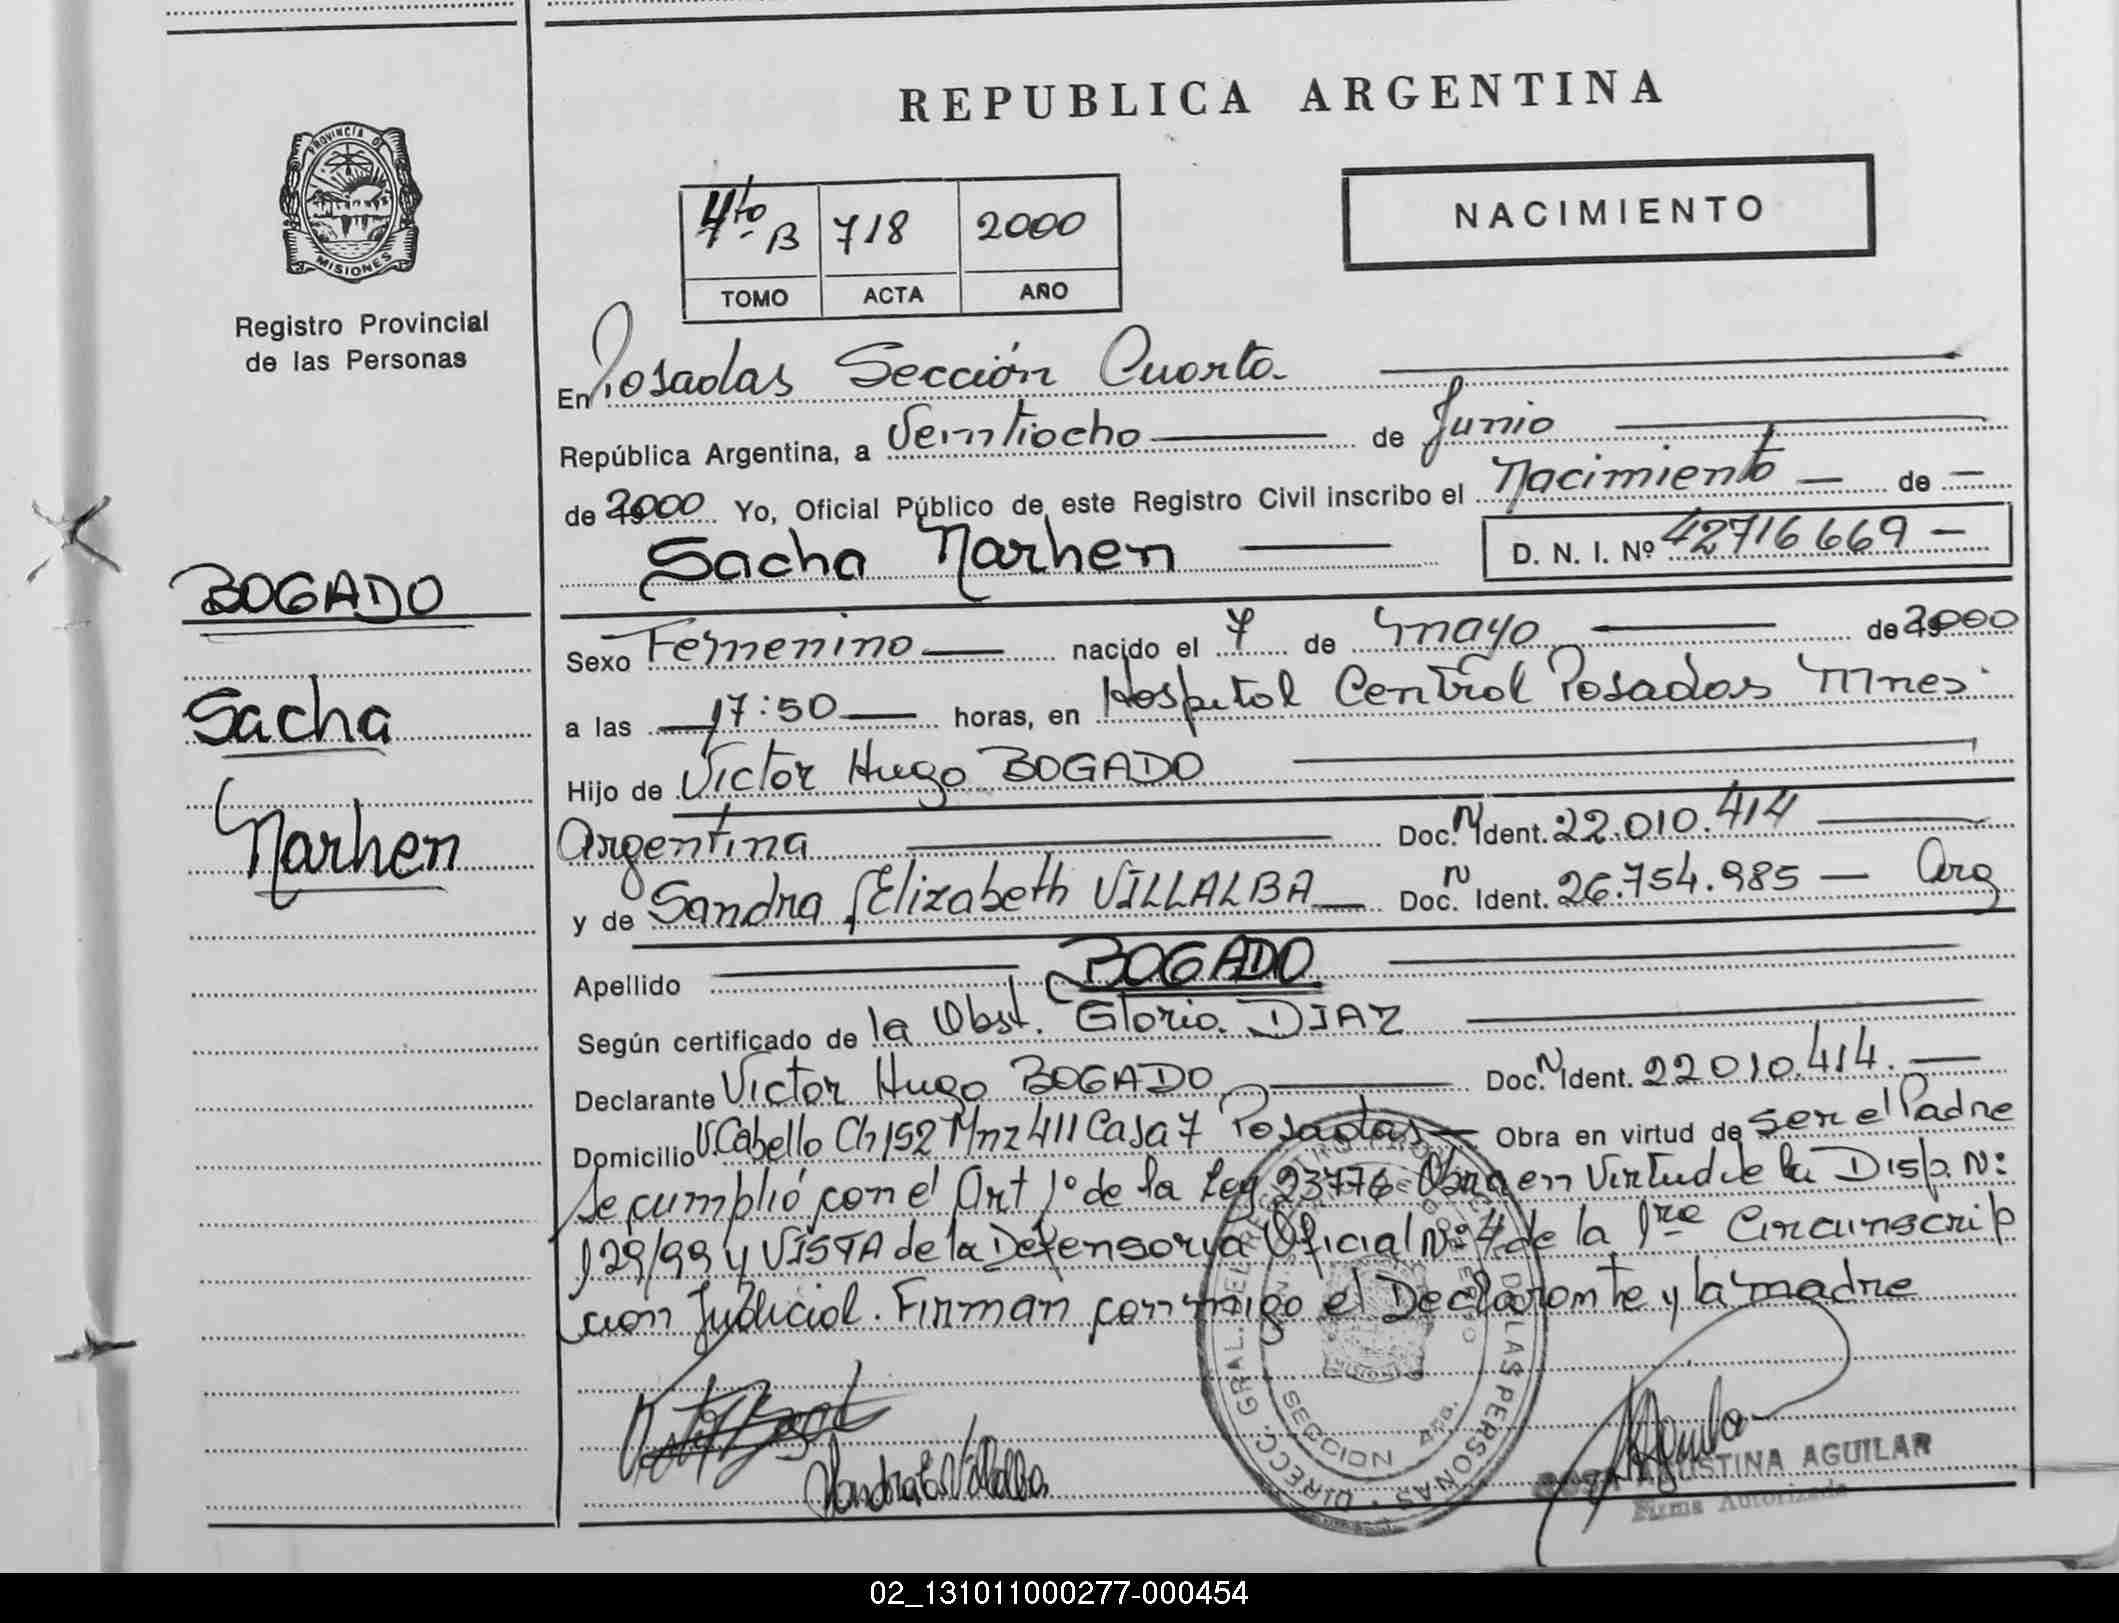 REPUBLICA ARGENTINA
PROVINCIA DE
MISIONES
Registro Provincial
de las Personas
4to B 718 2000
TOMO ACTA AÑO
NACIMIENTO
En Posadas Sección Cuarta
República Argentina, a Veintiocho de Junio
de 2000 Yo, Oficial Público de este Registro Civil inscribo el Nacimiento de
Sacha Narhen D. N. I. Nº 42716669
BOGADO
Sacha
Narhen
Sexo Femenino nacido el 7 de mayo de 2000
a las 17:50 horas, en Hospital Central Posadas Mnes.
Hijo de Victor Hugo BOGADO
Argentina Doc. N Ident. 22.010.414
y de Sandra Elizabeth VILLALBA Doc. N Ident. 26.754.985 Arg
Apellido BOGADO
Según certificado de la Obst. Gloria DIAZ
Declarante Victor Hugo BOGADO Doc. N Ident. 22010.414.
Domicilio V. Cabello Ch 152 Mnz 411 Casa 7 Posadas Obra en virtud de ser el Padre
Se cumplió con el Art 1º de la Ley 23776 Obra en Virtud de la Disp. Nº
129/99 y VISTA de la Defensoría Oficial Nº 4 de la 1ra Circunscrip
cion Judicial. Firman conmigo el Declarante y la madre
Sandra E Villalba
AGUSTINA AGUILAR
Firma Autorizada
DIRECC. GRAL. DEL REGISTRO DE LAS PERSONAS
SECCION 4ta.
MISIONES
02_131011000277-000454